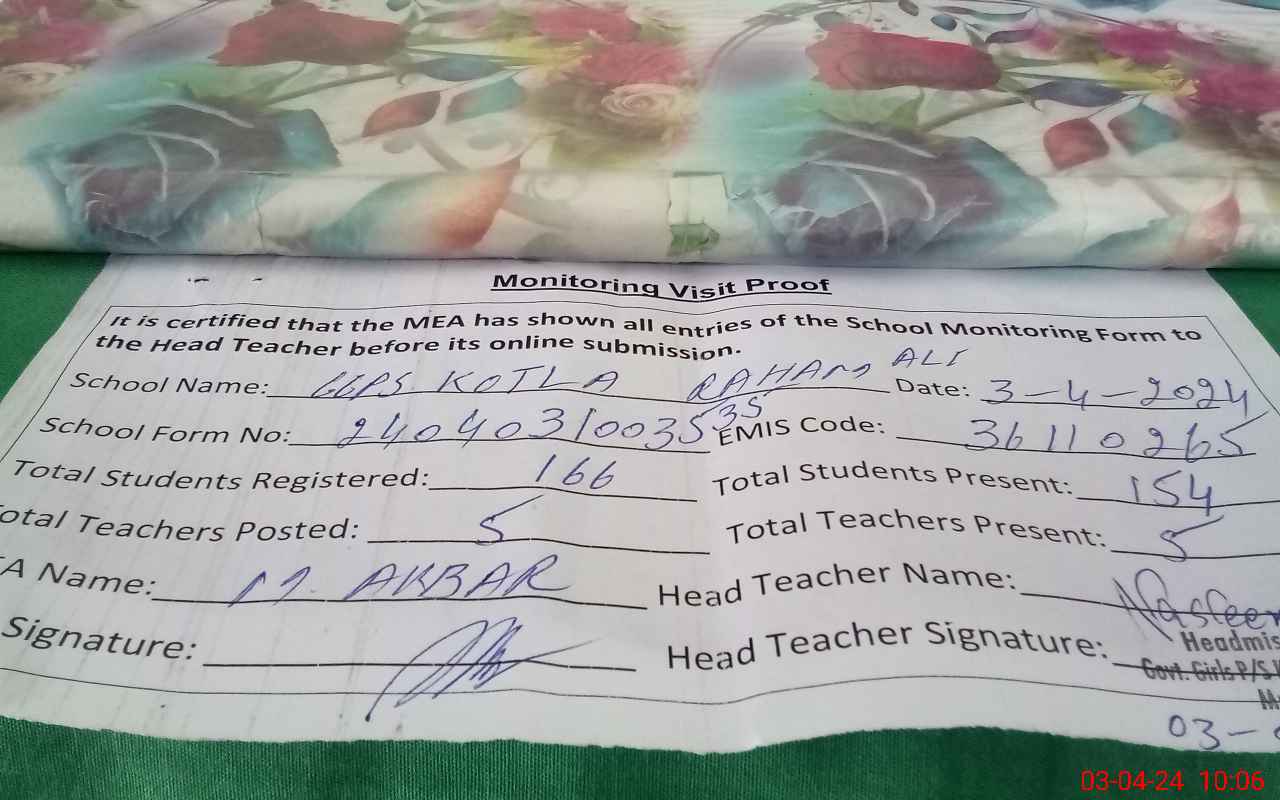 Monitoring Visit Proof
It is certified that the MEA has shown all entries of the School Monitoring Form to
the Head Teacher before its online submission.
School Name: GGPS KOTLA RAHAM ALI Date: 3-4-2024
School Form No: 240403100355 35 EMIS Code: 36110265
Total Students Registered: 166 Total Students Present: 154
otal Teachers Posted: 5 Total Teachers Present: 5
A Name: M. AKBAR Head Teacher Name:
Signature: Head Teacher Signature:
Nasreen
Headmis
Govt. Girls P/S
03-
03-04-24 10:06